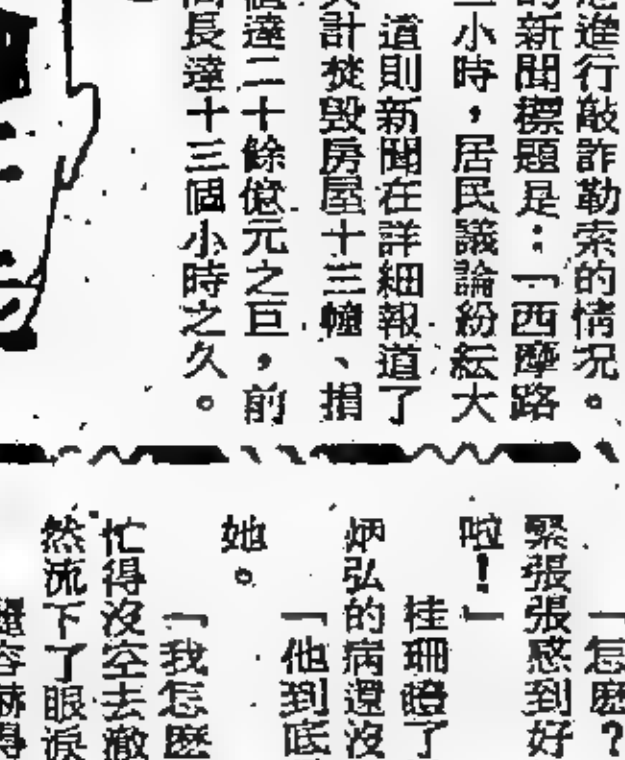 進行敲詐勒索的情況。
新聞標題是：「西摩路
小時，居民議論紛紜大
道則新聞在詳細報道了
計焚毀房屋十三幢、損
達二十餘億元之巨，前
長達十三個小時之久。
「怎麽？
緊張張感到好
啦！」
桂珊瞪了
炳弘的病還沒
「他到底
她。
「我怎麽
忙得沒空去澈
然流下了眼淚
容嚇得